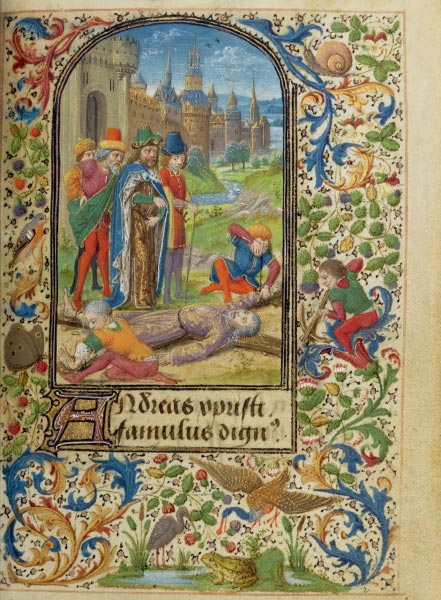 Andreas xpristi
famulus dignꝰ